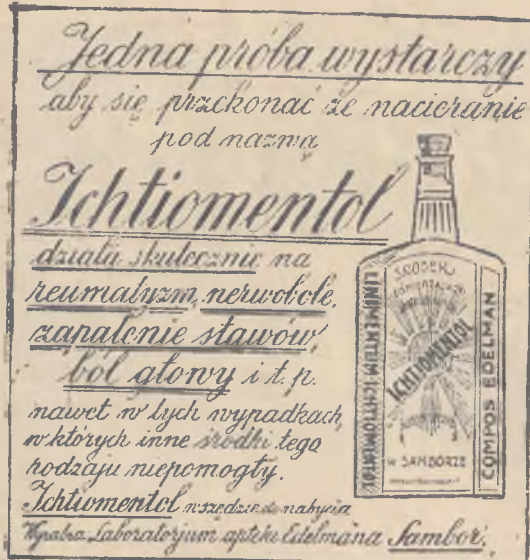 Jedna próba wystarczy
aby się przekonać że nacieranie
pod nazwą
Ichtiomentol
działa skutecznie na
reumatyzm, nerwobole,
zapalenie stawów,
ból głowy i t. p.
nawet w tych wypadkach,
w których inne środki tego
rodzaju niepomogły.
Ichtiomentol wszędzie do nabycia
Wyrabia: Laboratorjum apteki Edelmana Sambor.
LINIMENTUM ICHTIOMENTOL
ŚRODEK
ICHTIOMENTOL
W SAMBORZE
COMPOS EDELMAN